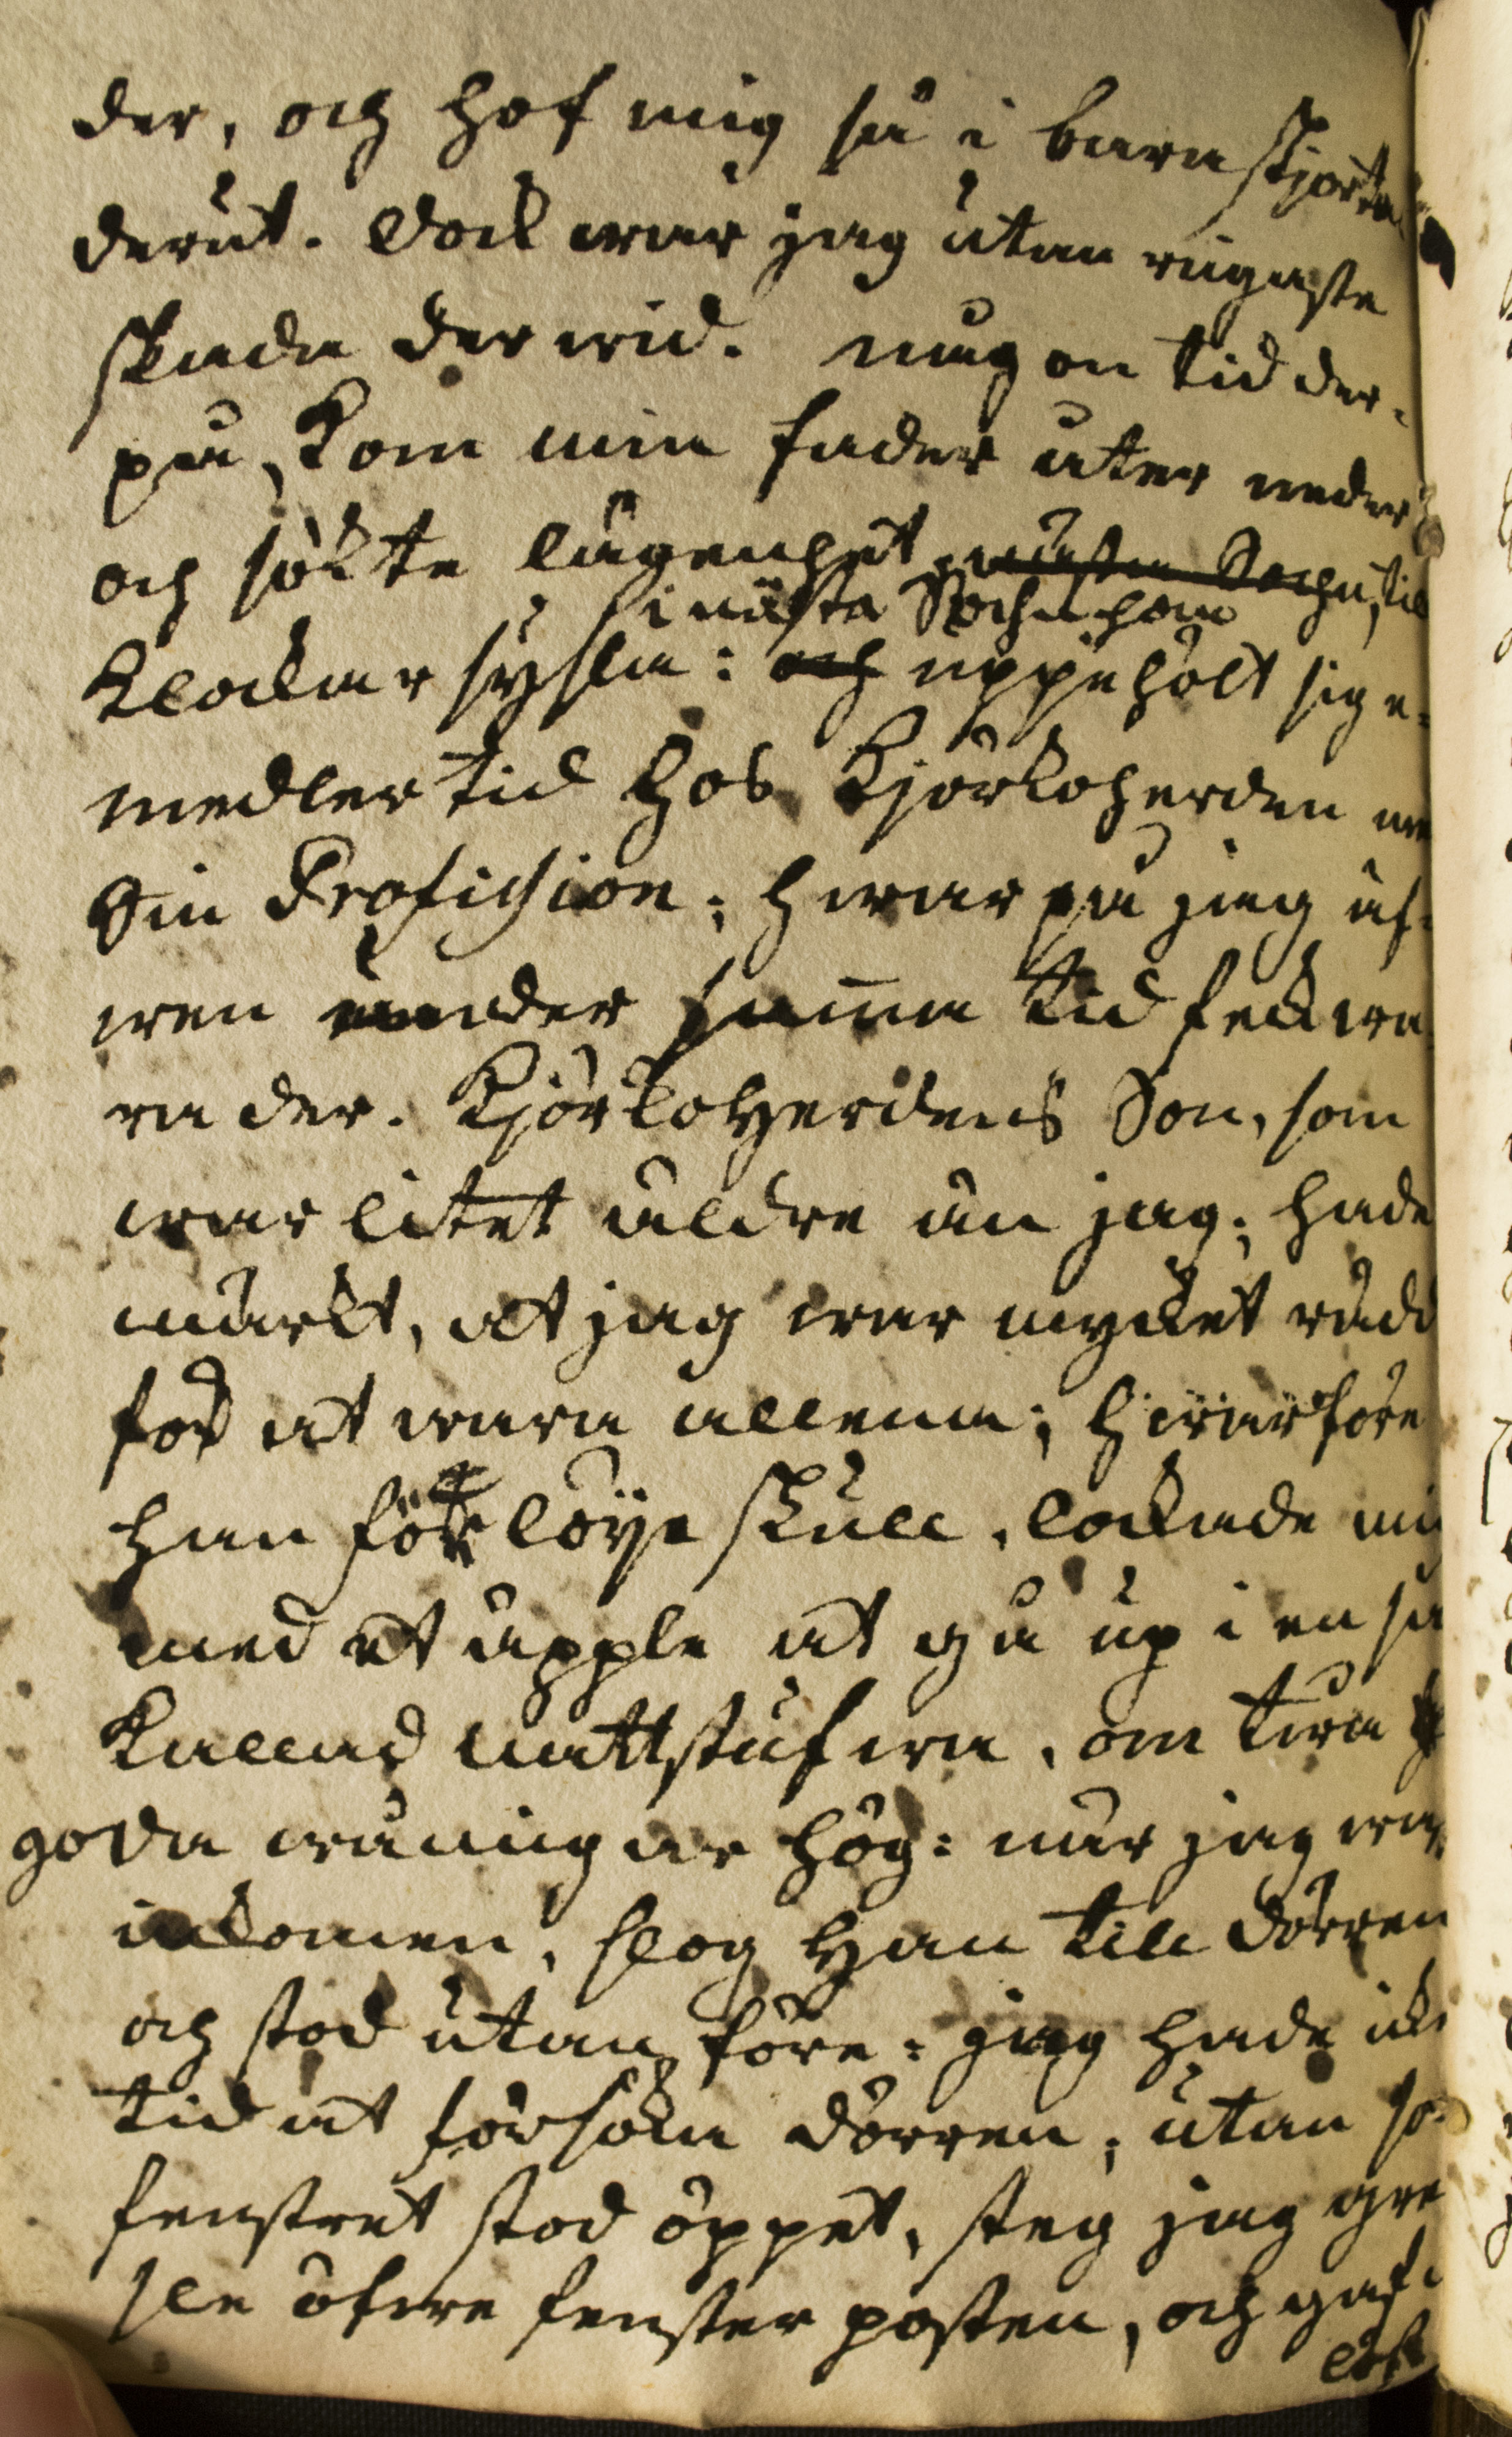 der, och hof mig så i bara skjorta
derut. Dock war jag utan ringaste
skada der wid. någon tid der-
på, kom min fader åter neder
och sökte lägenhet nästa Sochn, til
i nästa Sochn han
Klockar sysla: och uppehölt sig e-
medlertid hos Kjörkoherden
Sin Profession; hwarpå jag äf-
wen under samma tid feck wa-
ra der. Kjörkoherdens Son, som
war litet äldre än jag; hade
märkt, at jag war mycket rädd
för at wara allena; hwarföre
han för löye skull, lockade mig
med et äpple at gå up i en så
kallad nattstufwa, om twå
goda wåningar hög: när jag war
inkommen, slog han till dörren
och stod utan före: jag hade icke
tid at försöka dörren; utan so-
fenstret stod öppet, steg jag gre
sle öfwre fenster posten, och gaf